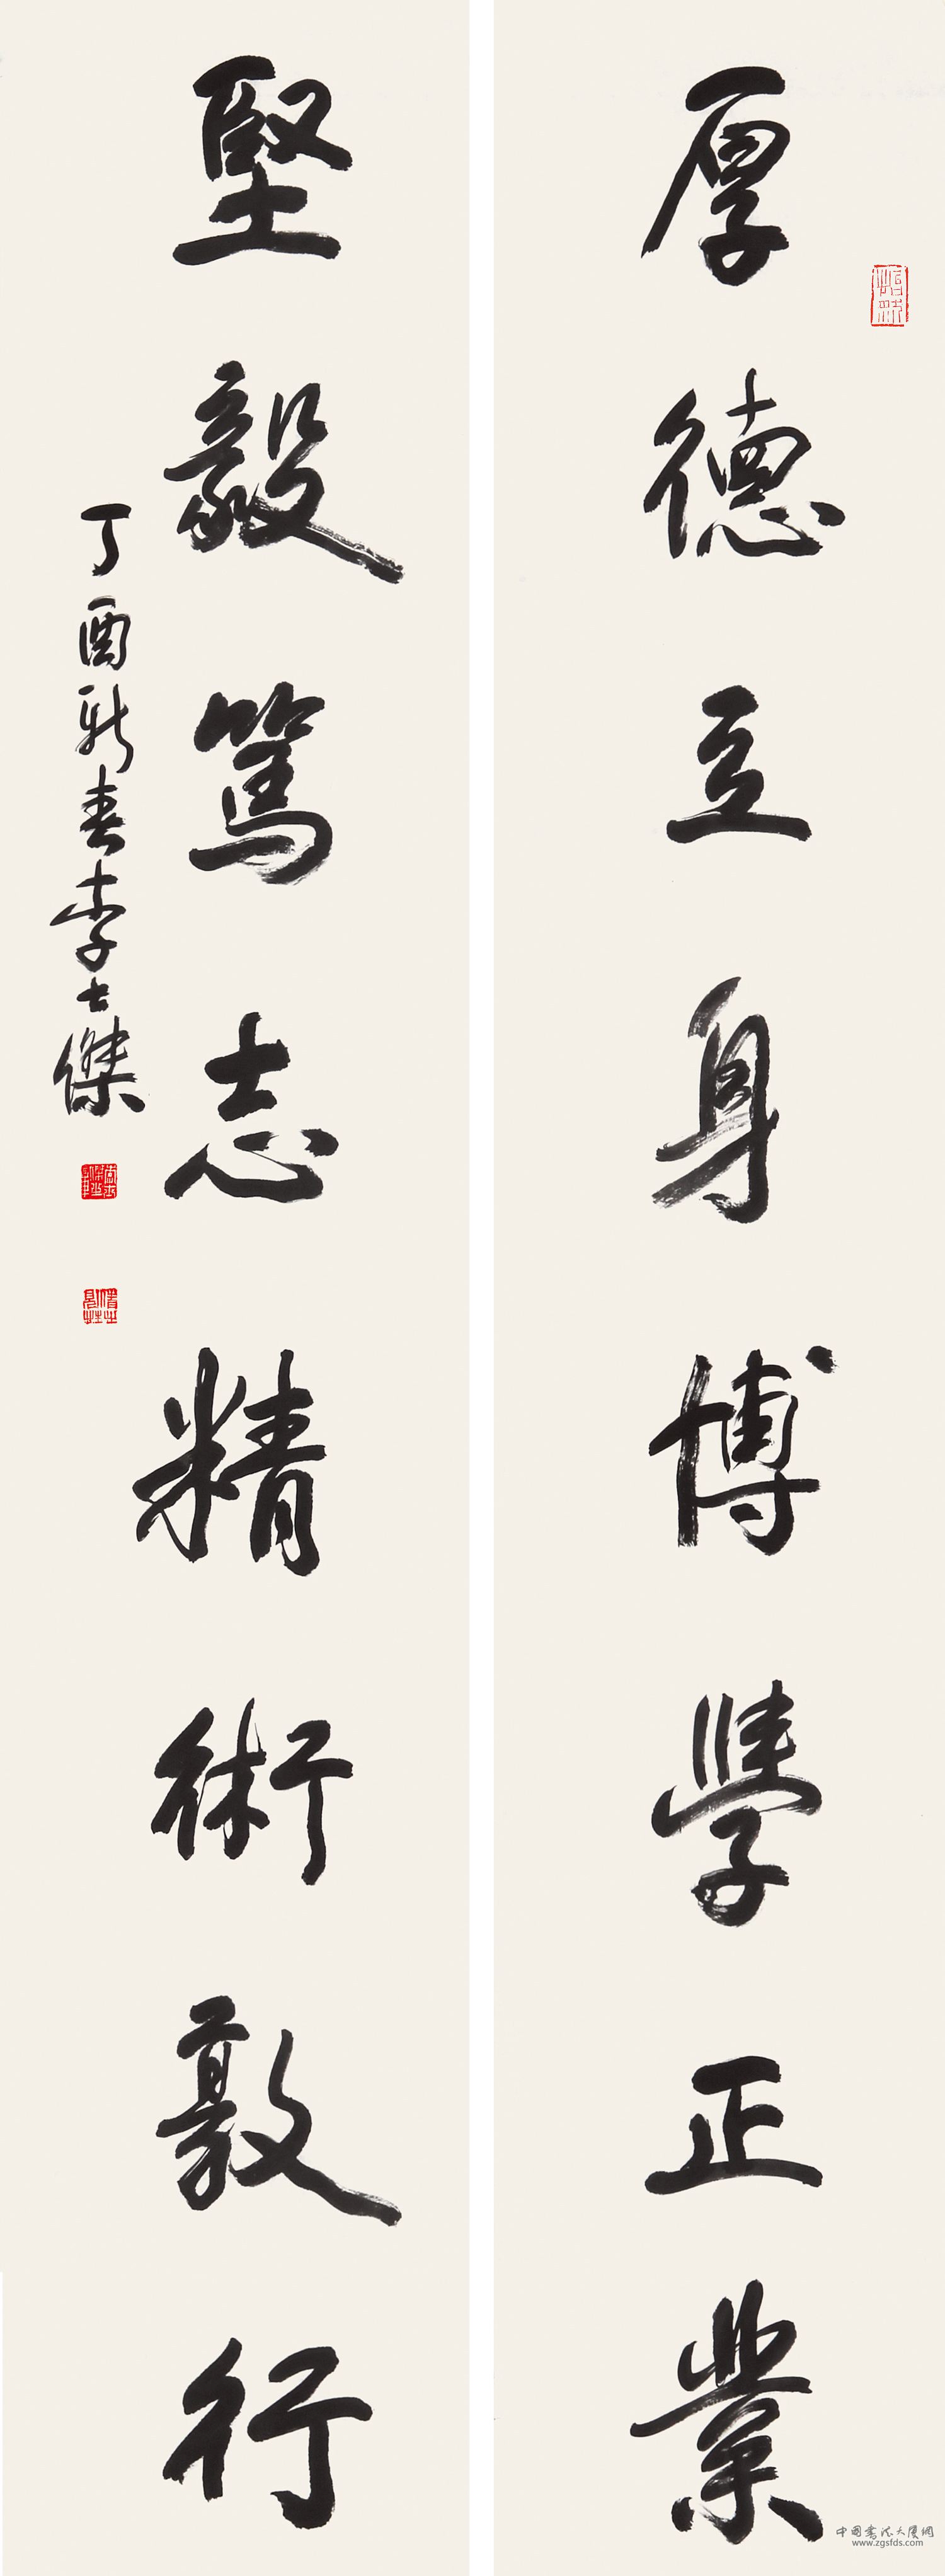 厚德立身博學正業
堅毅篤志精術敦行
丁酉新春李士傑
中国書法大厦網
www.zgsfds.com